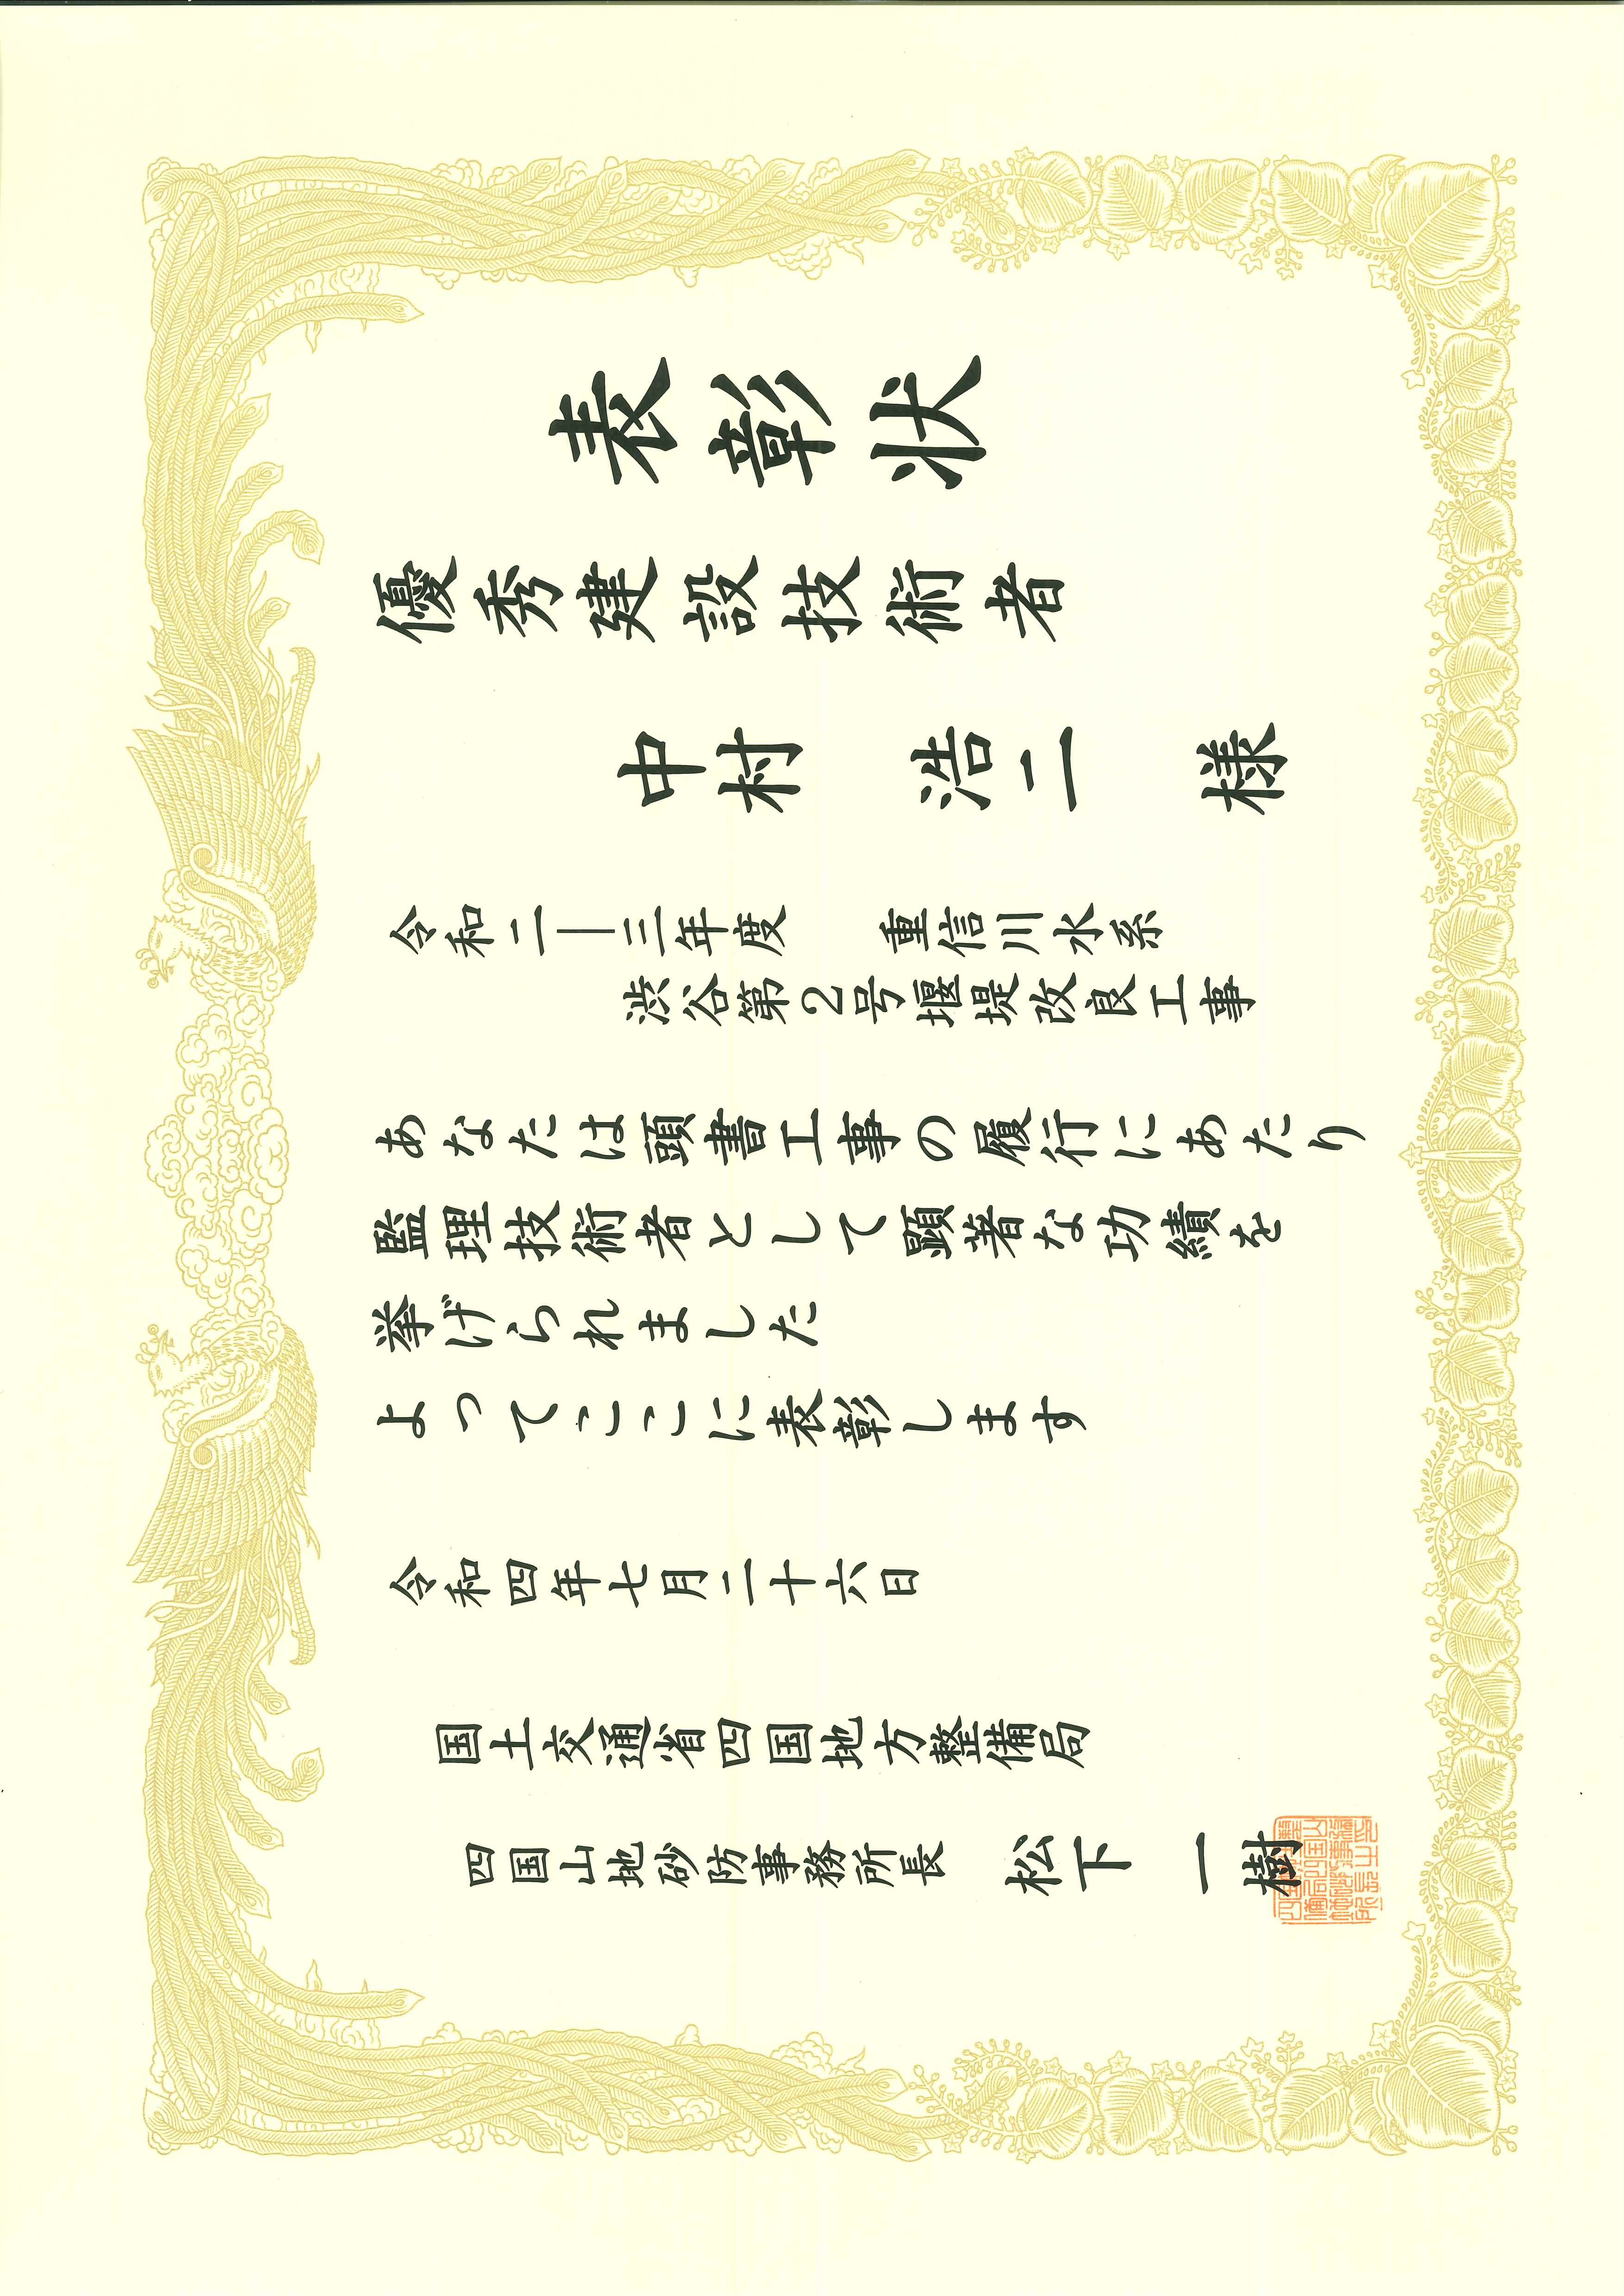 表彰状
優秀建設技術者
中村　浩二　様
令和二―三年度　重信川水系
渋谷第2号堰堤改良工事
あなたは頭書工事の履行にあたり
監理技術者として顕著な功績を
挙げられました
よってここに表彰します
令和四年七月二十六日
国土交通省四国地方整備局
四国山地砂防事務所長　松下　一樹